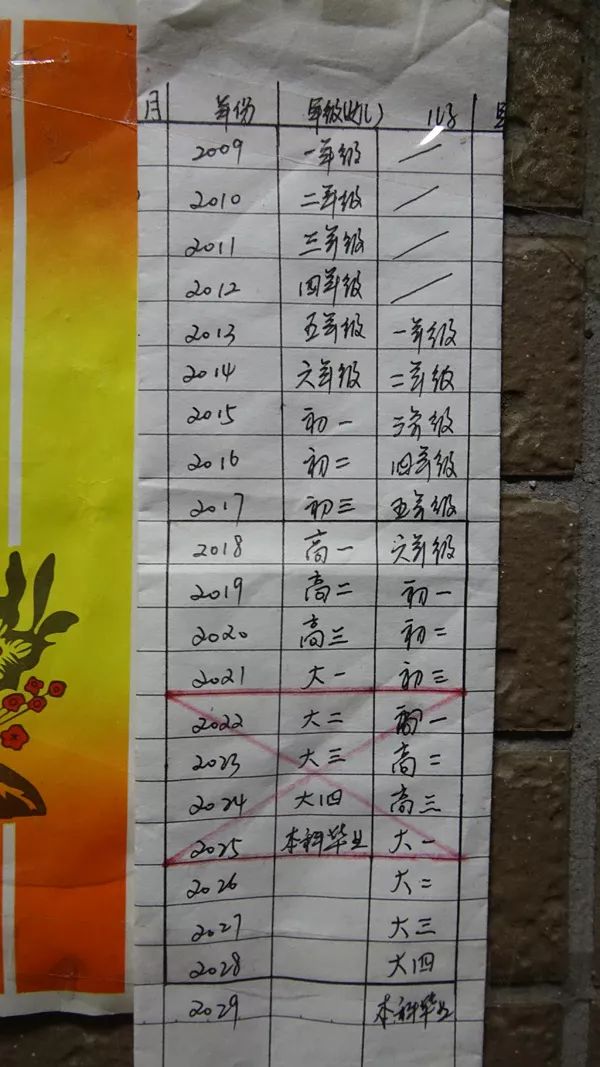 月 年份 年级(女儿) 儿子
2009 一年级 /
2010 二年级 /
2011 三年级 /
2012 四年级 /
2013 五年级 一年级
2014 六年级 二年级
2015 初一 三年级
2016 初二 四年级
2017 初三 五年级
2018 高一 六年级
2019 高二 初一
2020 高三 初二
2021 大一 初三
2022 大二 高一
2023 大三 高二
2024 大四 高三
2025 本科毕业 大一
2026 大二
2027 大三
2028 大四
2029 本科毕业